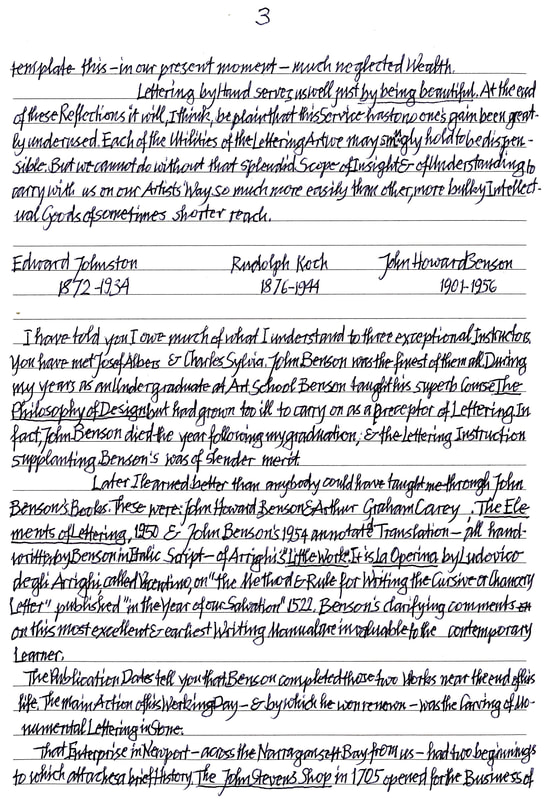 3
template this – in our present moment – much neglected Wealth.
Lettering by Hand serves us well just by being beautiful. At the end
of these Reflections it will, I think, be plain that this Service has to no one's gain been great-
ly underused. Each of the Utilities of the Lettering Art we may singly hold to be dispen-
sible. But we cannot do without that splendid Scope of Insight & of Understanding to
carry with us on our Artists Way so much more easily than other, more bulky Intellect-
ual Goods of sometimes shorter reach.
Edward Johnston Rudolph Koch John Howard Benson
1872-1934 1876-1944 1901-1956
I have told you I owe much of what I understand to three exceptional Instructors.
You have met Josef Albers & Charles Sylvia. John Benson was the finest of them all. During
my years as an Undergraduate at Art School Benson taught his superb Course The
Philosophy of Design but had grown too ill to carry on as a preceptor of Lettering. In
fact, John Benson died the year following my graduation, & the Lettering Instruction
supplanting Benson's was of slender merit.
Later I learned better than anybody could have taught me through John
Benson's Books. These were: John Howard Benson & Arthur Graham Carey, The Ele-
ments of Lettering, 1950 & John Benson's 1954 annotated Translation – all hand-
written by Benson in Italic Script – of Arrighi's "Little Work." It is La Operina by Ludovico
degli Arrighi, called Vicentino, on "the Method & Rule for Writing the Cursive or Chancery
Letter" published "in the Year of our Salvation" 1522. Benson's clarifying comments on
on this most excellent & earliest Writing Manual are invaluable to the contemporary
Learner.
The Publication Dates tell you that Benson completed those two Works near the end of his
life. The main Action of his Working Day – & by which he won renown – was the Carving of Mo-
numental Lettering in Stone.
That Enterprise in Newport – across the Narragansett Bay from us – had two beginnings
to which attaches a brief History. The John Stevens Shop in 1705 opened for the Business of